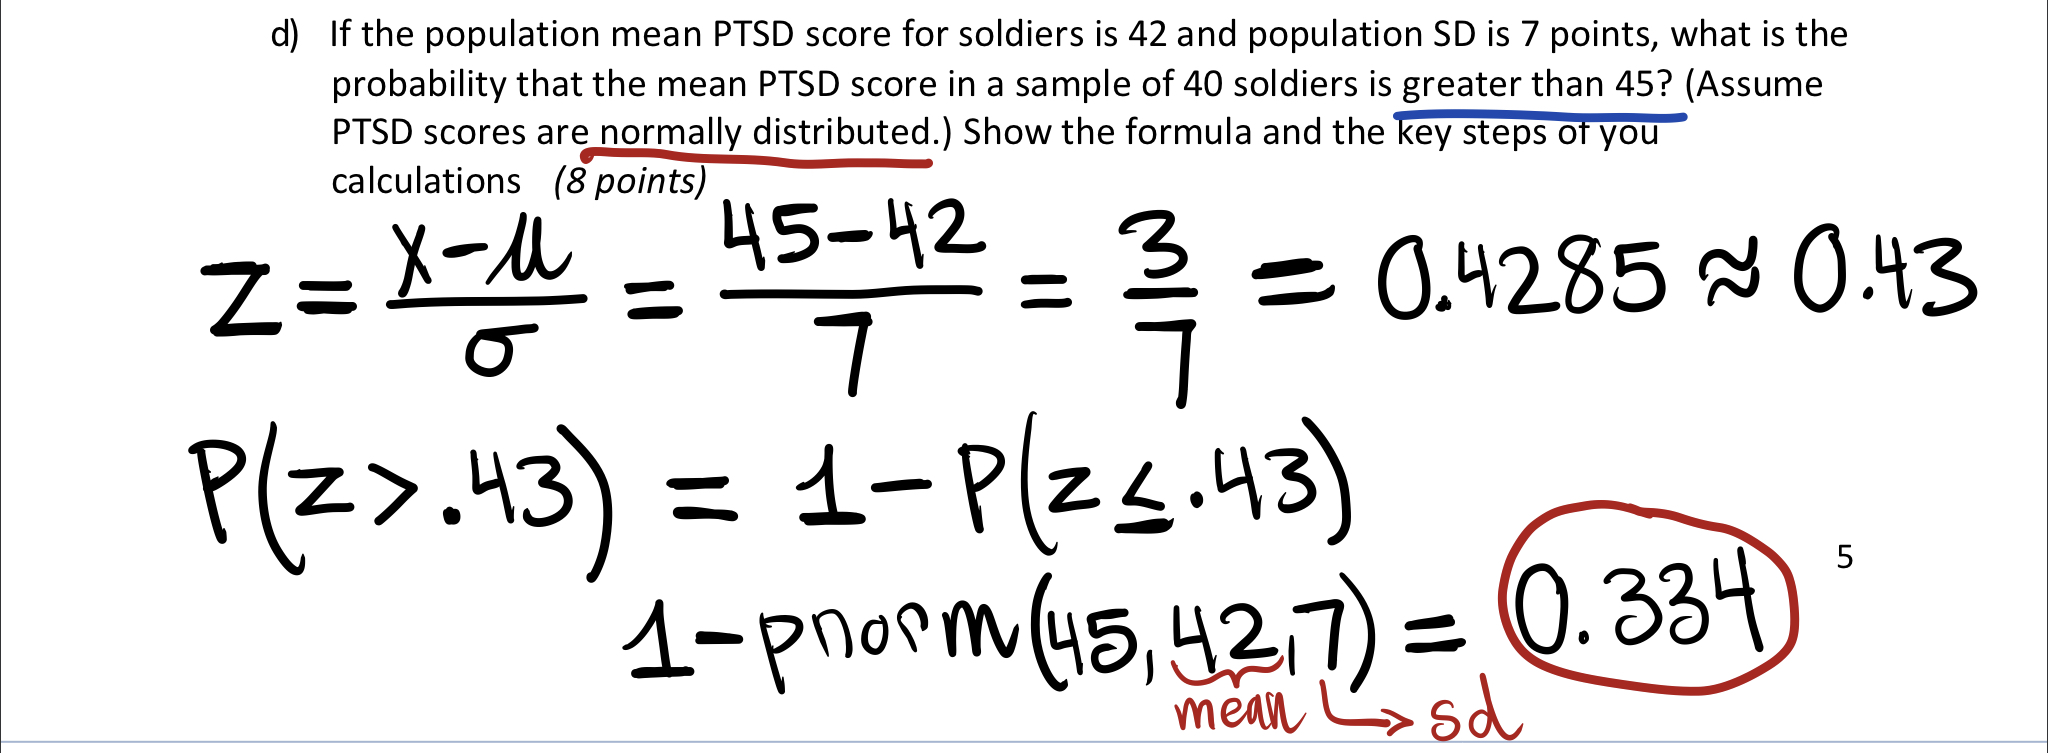 d) If the population mean PTSD score for soldiers is 42 and population SD is 7 points, what is the
probability that the mean PTSD score in a sample of 40 soldiers is greater than 45? (Assume
PTSD scores are normally distributed.) Show the formula and the key steps of you
calculations (8 points)
z = (x-μ)/σ = (45-42)/7 = 3/7 = 0.4285 ≈ 0.43
P(z>.43) = 1-P(z≤.43)
5
1-pnorm(45,42,7) = 0.334
mean → sd